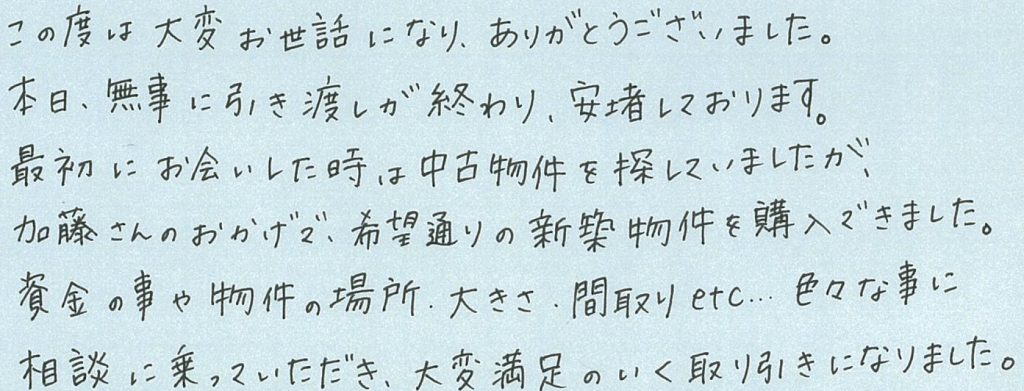 この度は大変お世話になり、ありがとうございました。
本日、無事に引き渡しが終わり、安堵しております。
最初にお会いした時は中古物件を探していましたが、
加藤さんのおかげで、希望通りの新築物件を購入できました。
資金の事や物件の場所・大きさ・間取りetc…色々な事に
相談に乗っていただき、大変満足のいく取り引きになりました。